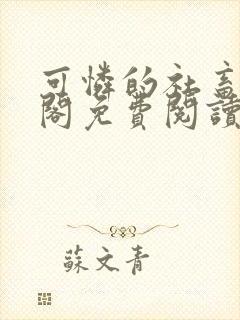 可憐的社畜
閣免費閱讀
蘇文青